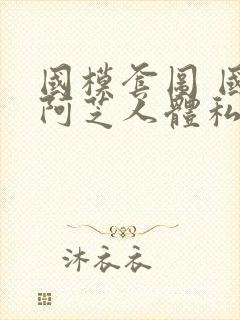 國模套圖 國
阿芝人體私
沐衣衣